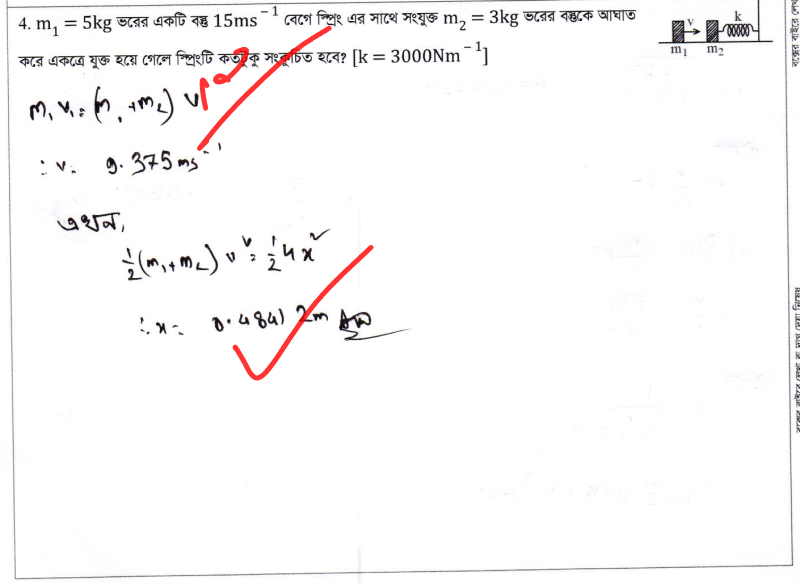 4. m₁ = 5kg ভরের একটি বস্তু 15ms⁻¹ বেগে স্প্রিং এর সাথে সংযুক্ত m₂ = 3kg ভরের বস্তুকে আঘাত
করে একত্রে যুক্ত হয়ে গেলে স্প্রিংটি কতটুকু সংকুচিত হবে? [k = 3000Nm⁻¹]
v k
m₁ m₂
m₁v₁ = (m₁+m₂) v
∴ v = 9.375 ms⁻¹
এখন,
½(m₁+m₂) v² = ½kx²
∴ x = 0.48412m